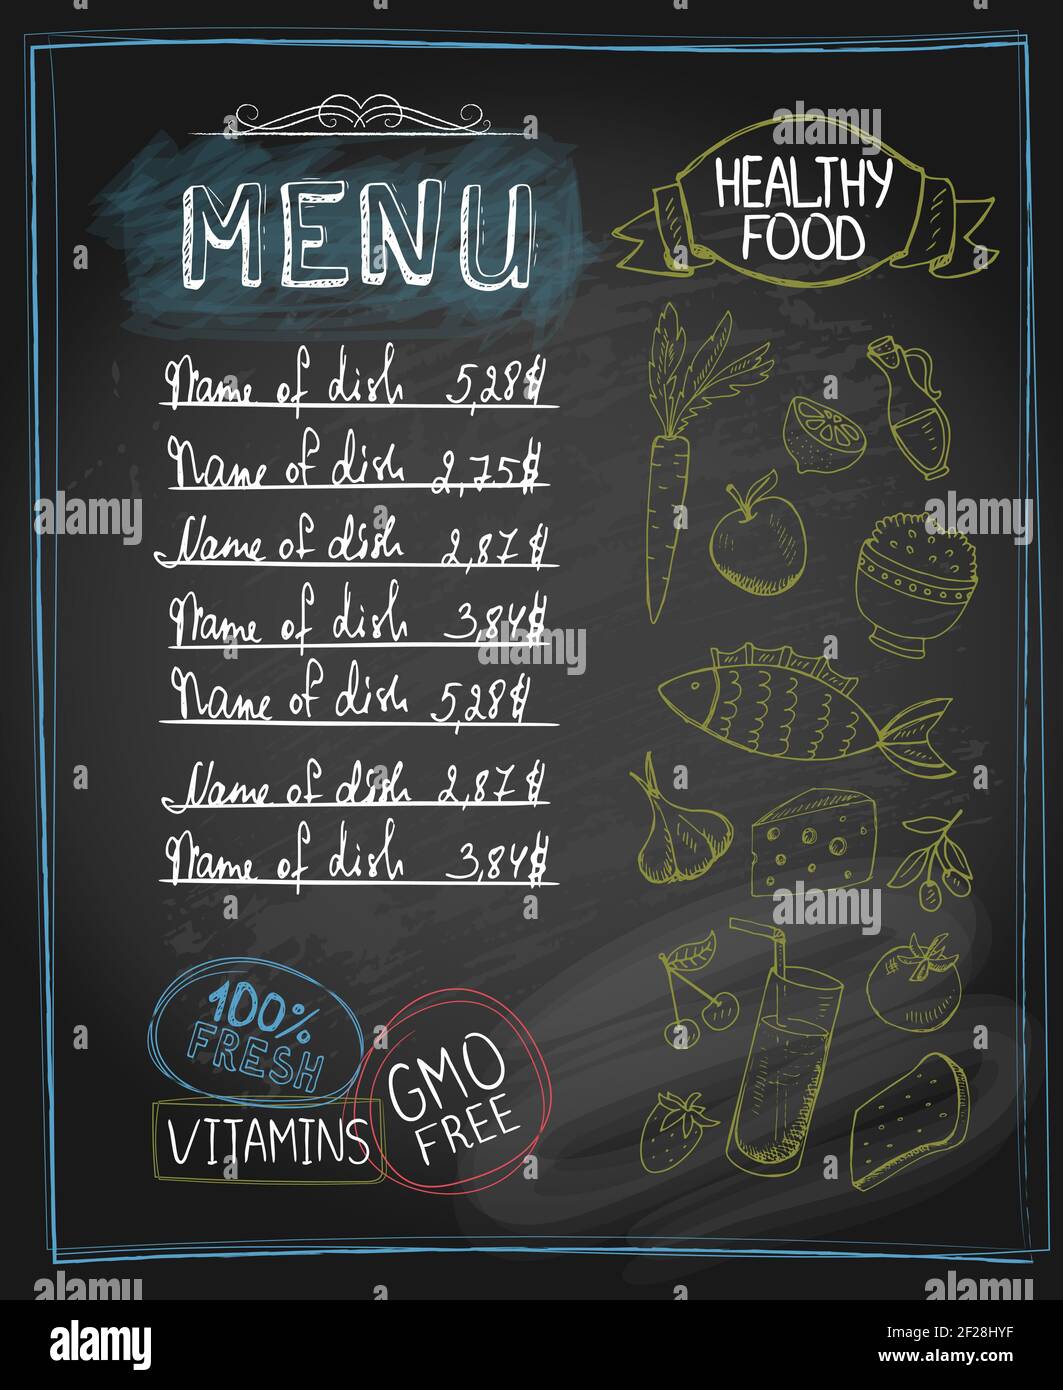 MENU
Name of dish 5,28$
Name of dish 2,75$
Name of dish 2,87$
Name of dish 3,84$
Name of dish 5,28$
Name of dish 2,87$
Name of dish 3,84$
100%
FRESH
VITAMINS
GMO
FREE
HEALTHY
FOOD
alamy
Image ID: 2F28HYF
www.alamy.com